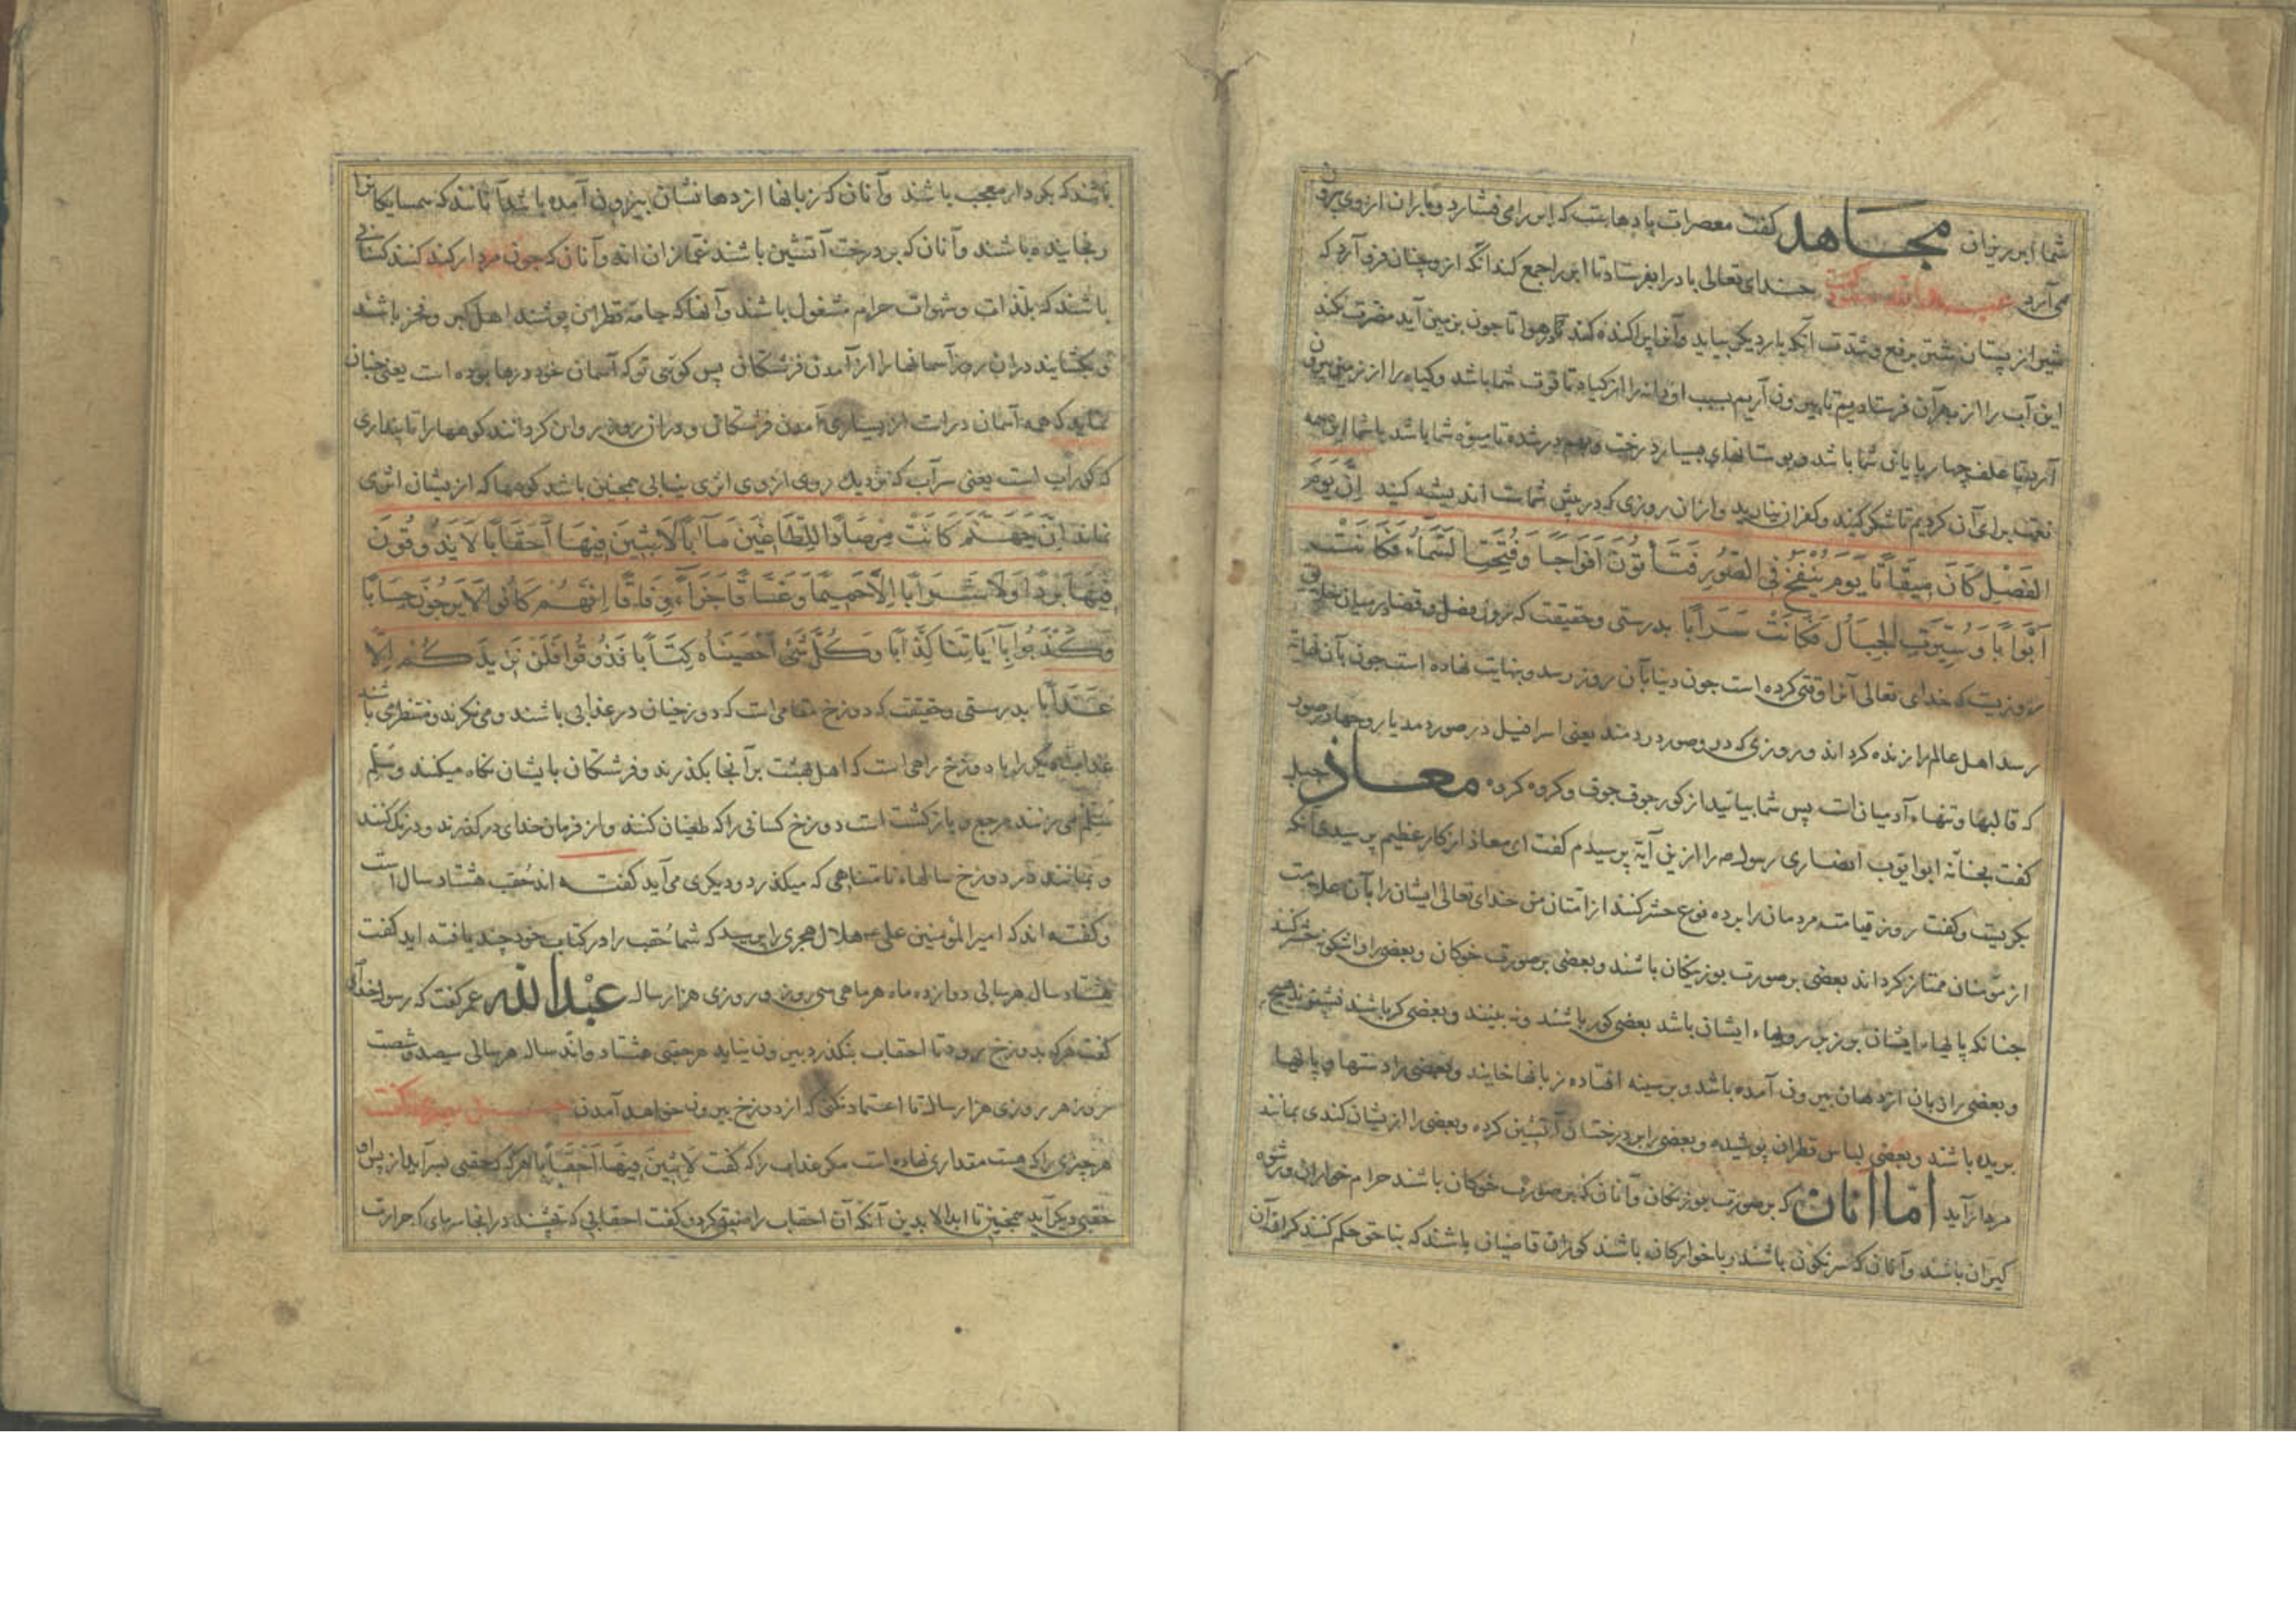 شما ابر ریزان مجاهد کفت معصرات بادهاست که ابر را می فشارد و باران از وی برون
می آرد عبدالله مسعود کفت خدای تعالی باد را بفرستاد تا ابر را جمع کند آنکه از وی چنان فرو آرد که
شیر از پستان شتر برفع و شدت آنکه باد دیکر بیاید و آنرا پراکنده کند در هوا تا جون بزمین آید مضرت نکند
این آب را از بهر آن فرستادیم تا بیرون آریم بسبب او دانه را از کیاه تا قوت شما باشد و کیاه را از زمین بیرون
آریم تا علف چهارپایان شما باشد و بوستانهای بسیار درخت و بهم در شده تا میوه شما باشد با شما این همه
نعمت برای آن کردیم تا شکر کنید و کفران نیارید و از ان روزی که در پیش شماست اندیشه کنید اِنَّ یَوْمَ
الفَصْلِ کَانَ مِیقَاتًا یَومَ یُنْفَخُ فِی الصُّورِ فَتَأتُونَ اَفوَاجًا وَفُتِحَتِ السَّمَآءُ فَکَانَتْ
اَبْوَابًا وَسُیِّرَتِ الجِبَالُ فَکَانَتْ سَرَابًا بدرستی و حقیقت که روز فصل و قضا در میان خلق
روزیست که خدای تعالی آنرا وقتی کرده است جون دنیا بآن روز رسد و بنهایت نهاده است جون بآن نهایة
رسد اهل عالم را زنده کرداند و روزی که درو صور در دمند یعنی اسرافیل در صور دمد یا روحها در صور
که قالبها و تنهاء آدمیان است پس شما بیائید از کور جوق جوق و کروه کروه معاذ جبل
کفت بخانۀ ابو ایوب انصاری رسول ص را ازین آیة پرسیدم کفت ای معاذ از کار عظیم پرسیدی آنکه
بکریست و کفت روز قیامت مردمان را بر ده نوع حشر کنند از امتان من خدای تعالی ایشان را بآن علامت
از مومنان ممتاز کرداند بعضی بر صورت بوزینکان باشند و بعضی بر صورت خوکان و بعضی را واشکونه حشر کنند
جنانکه پایهاء ایشان بر زبر رویهاء ایشان باشد بعضی کور باشند و نه بینند و بعضی کر باشند نشنوند هیچ
و بعضی را زبان از دهان بیرون آمده باشد و بر سینه افتاده زبانها خایند و بعضی را دستها و پایها
بریده باشند و بعضی لباس قطران پوشیده و بعضی را بر درختان آتشین کرده و بعضی را ازیشان کندی بمانند
مردار آید اما آنان که بر صورت بوزینکان و آنان که بر صورت خوکان باشند حرام خواران و رشوه
کیران باشند و آنان که سرنکون باشند ربا خوارکان باشند کوران قاضیان باشند که بناحق حکم کنند کران آن
باشند که بکردار معجب باشند و آنان که زبانها از دهانشان بیرون آمده باشد آنانند که همسایکانرا
رنجانیده باشند و آنان که بر درخت آتشین باشند غمازان اند و آنان که جون مردار کند کنند کسانی
باشند که بلذات و شهوات حرام مشغول باشند و آنها که جامۀ قطران پوشند اهل کبر و فخر باشند
و بکشایند در ان روز آسمانها را از آمدن فرشتکان پس کوئی تو که آسمان خود درها بوده است یعنی جنان
نماید که همه آسمان درست از بسیاری آمدن فرشتکان و در ان روز روان کردانند کوهها را تا پنداری
که کور آب است یعنی سرآب که نزدیک روی از وی اثری نیابی همچنین باشد کوهها که ازیشان اثری
نماند اِنَّ جَهَنَّمَ کَانَتْ مِرصَادًا لِلطَّاغِینَ مَآبًا لاَبِثِینَ فِیهَا اَحقَابًا لاَ یَذُوقُونَ
فِیهَا بَردًا وَلاَ شَرَابًا اِلاَّ حَمِیمًا وَغَسَّاقًا جَزَآءً وِفَاقًا اِنَّهُم کَانُوا لاَ یَرجُونَ حِسَابًا
وَکَذَّبُوا بِآیَاتِنَا کِذَّابًا وَکُلَّ شَیْءٍ اَحْصَینَاهُ کِتَابًا فَذُوقُوا فَلَن نَزِیدَکُمْ اِلاَّ
عَذَابًا بدرستی و حقیقت که دوزخ مقامی است که دوزخیان در عذابی باشند و می نکرند و منتظر می باشند
عذاب دیکر را یا دوزخ راهی است که اهل بهشت بر آنجا بکذرند و فرشتکان بایشان نکاه میکنند و سَلِّم
سَلِّم می زنند مرجع و بازکشت است دوزخ کسانی را که طغیان کنند و از فرمان خدای درکذرند و درنک کنند
و بمانند در دوزخ سالهاء نامتناهی که میکذرد و دیکری می آید کفته اند حُقب هشتاد سال است
و کفته اند که امیر المؤمنین علی هلال هجری را پرسید که شما حُقب را در کتاب خود چند یافته اید کفت
هشتاد سال هر سالی دوازده ماه هر ماهی سی روز و روزی هزار ساله عبْدالله عمر کفت که رسول خدای
کفت هر که بدوزخ رود تا احقاب بنکذرد بیرون نیاید هر حقبی هشتاد و اند سال هر سالی سیصد و شصت
روز هر روزی هزار ساله تا اعتماد نکنی که از دوزخ بیرون خواهد آمدن حسن بصری کفت
هر چیزی را که هست مقداری نهاده است مکر عذاب را که کفت لاَبِثِینَ فِیهَا اَحْقَابًا هر که که حقبی بسر آید از پس او
حقبی دیکر آید همچنین تا ابد الابدین آنکه آن احقاب را صفت کرد و کفت احقابی که نچشند در انجا سرمای که حرارت